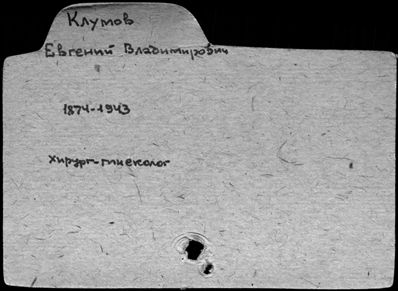 Клумов
Евгений Владимирович
1874-1943
хирург-гинеколог